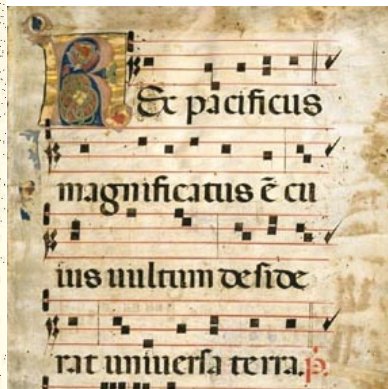 REx pacificus
magnificatus ē cu
ius uultum deside
rat universa terra. p̄.